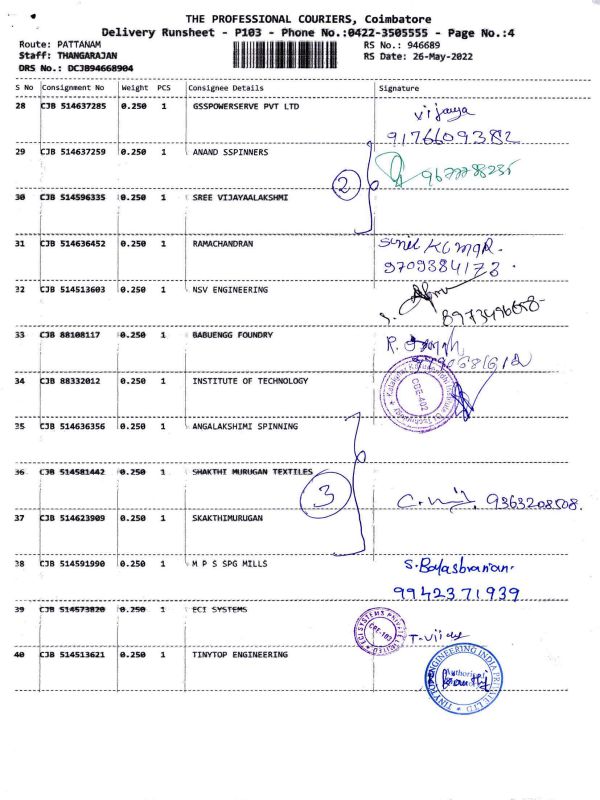 THE PROFESSIONAL COURIERS, Coimbatore
Delivery Runsheet - P103 - Phone No.:0422-3505555 - Page No.:4
Route: PATTANAM RS No.: 946689
Staff: THANGARAJAN RS Date: 26-May-2022
DRS No.: DCJB94668904
S No Consignment No Weight PCS Consignee Details Signature
28 CJB 514637285 0.250 1 GSSPOWERSERVE PVT LTD Vijaya
9176609382
29 CJB 514637259 0.250 1 ANAND SSPINNERS
2
30 CJB 514596335 0.250 1 SREE VIJAYAALAKSHMI
31 CJB 514636452 0.250 1 RAMACHANDRAN Sunil Kumar.
9709384173.
32 CJB 514513603 0.250 1 NSV ENGINEERING
33 CJB 88108117 0.250 1 BABUENGG FOUNDRY
34 CJB 88332012 0.250 1 INSTITUTE OF TECHNOLOGY CBE-402
35 CJB 514636356 0.250 1 ANGALAKSHIMI SPINNING
36 CJB 514581442 0.250 1 SHAKTHI MURUGAN TEXTILES
3
9363208508.
37 CJB 514623909 0.250 1 SKAKTHIMURUGAN
38 CJB 514591990 0.250 1 M P S SPG MILLS
9942371939
39 CJB 514573820 0.250 1 ECI SYSTEMS ECI SYSTEMS PRIVATE LIMITED CBE-103
40 CJB 514513621 0.250 1 TINYTOP ENGINEERING TINYTOP ENGINEERING INDIA PRIVATE LTD